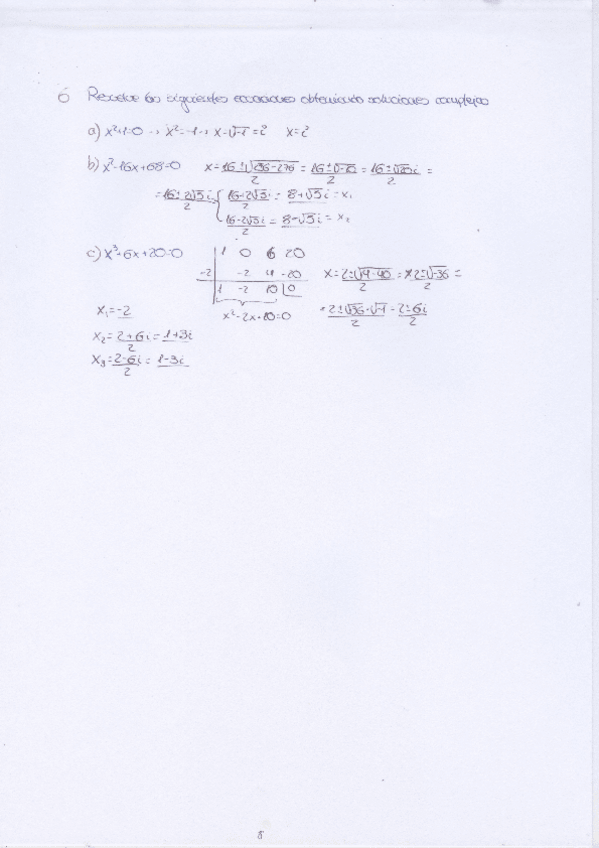 6 Resuelve las siguientes ecuaciones obteniendo soluciones complejas
a) x²+1=0 → x²=-1 → x=√-1 = i x=i
b) x²-16x+68=0 x = 16±√256-276/2 = 16±√-20/2 = 16±√20i/2 =
= 16±2√5i/2 { 16-2√5i/2 = 8+√5i = x₁
16-2√5i/2 = 8-√5i = x₂
c) x³+6x+20=0 1 0 6 20
-2 -2 4 -20 x = 2±√4-40/2 = 2±√-36/2 =
1 -2 10 0
x₁=-2 x²-2x+10=0 = 2±√36·√-1/2 = 2±6i/2
x₂ = 2+6i/2 = 1+3i
x₃ = 2-6i/2 = 1-3i
8